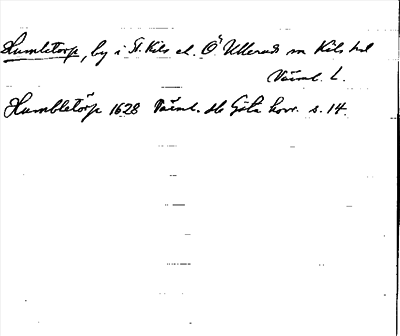 Humletorp, by i St. Kils el. Ö Ullerud sn Kils hd
Värml. L.
Humbletörp 1628 Värml. Göta hovr. s. 14.